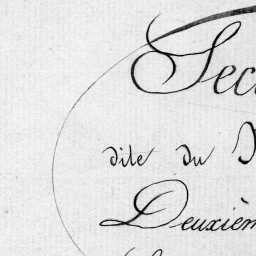 Sec
dite du
Deuxièm